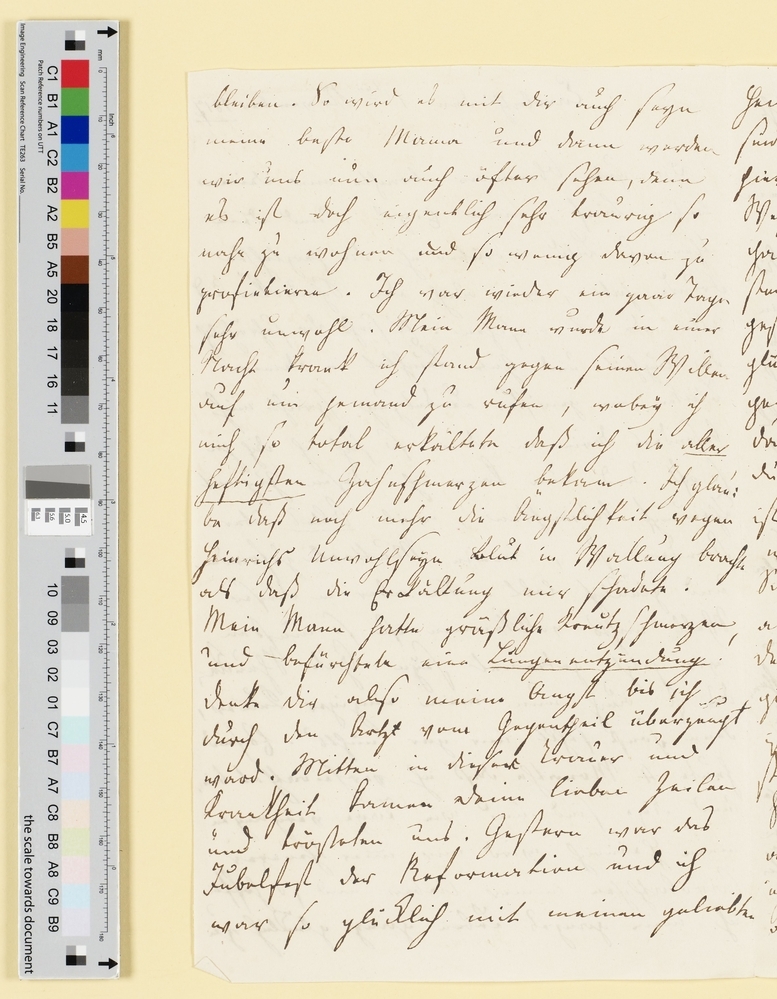 bleiben. So wird es mit dir auch seyn
meine beste Mama und dann werden
wir uns nun auch öfter sehen, denn
es ist doch eigentlich sehr traurig so
nahe zu wohnen und so wenig davon zu
profitieren. Ich war wieder ein paar Tage
sehr unwohl. Mein Mann wurde in einer
Nacht krank ich stand gegen seinen Willen
auf um jemand zu rufen, wobey ich
mich so total erkältete daß ich die aller
heftigsten Zahnschmerzen bekam. Ich glau:
be daß noch mehr die Ängstlichkeit wegen
Heinrichs Unwohlseyn Blut in Wallung brachte
als daß die Erkältung mir schadete.
Mein Mann hatte gräßliche Kreutzschmerzen,
und befürchtete eine Lungenentzündung.
denke dir also meine Angst bis ich
durch den Artzt vom Gegentheil überzeugt
ward. Mitten in dieser Trauer und
Krankheit kamen deine lieben Zeilen
und trösteten uns. Gestern war das
Jubelfest der Reformation und ich
war so glücklich mit meinen geliebten
C1 B1 A1 C2 B2 A2 B5 A5 20 18 17 16 11
10 09 03 02 01 C7 B7 A7 C8 B8 A8 C9 B9
Image Engineering Scan Reference Chart TE263 Serial No.
Patch Reference numbers on UTT
mm
inch
the scale towards document